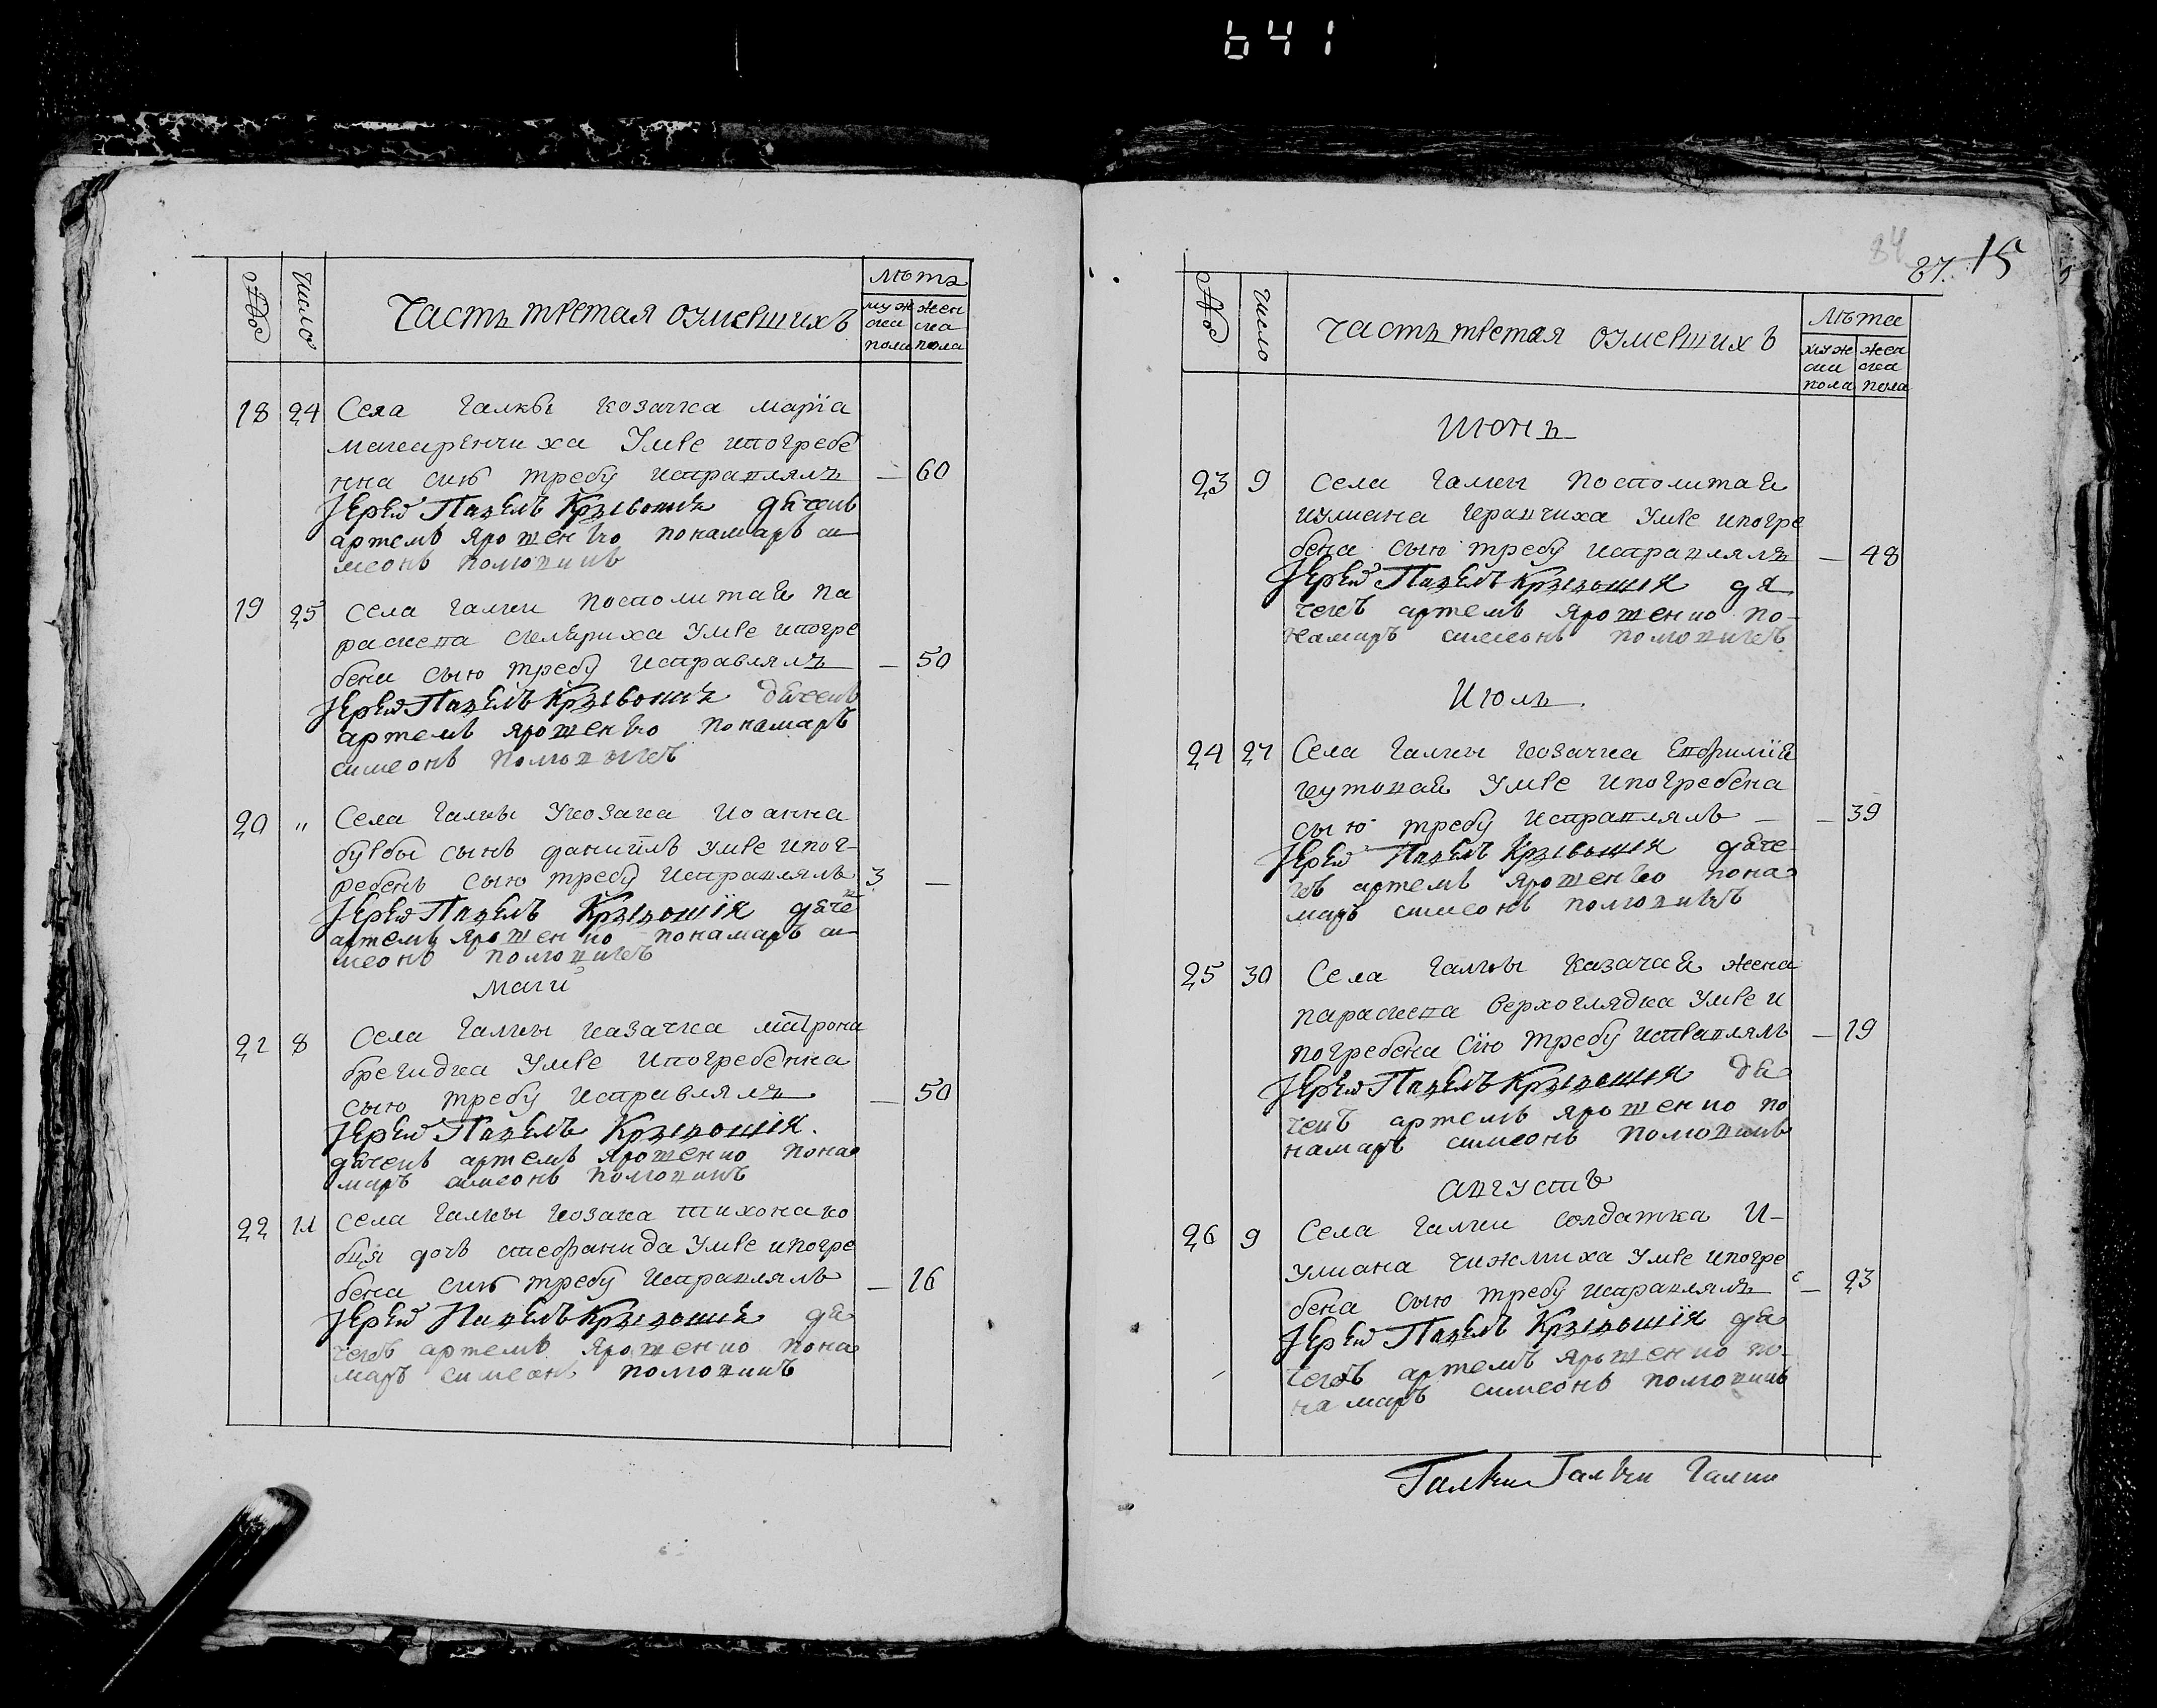 641
№ число Часть третая оумершихъ лѣта
мужска пола женска пола
18 24 Села Галкы козачка марїа
макаренчиха Умре ипогребе
нна сию требу исправлялъ — 60
Іерей Павелъ Крывошия дячекъ
артемъ ярошенко понамаръ си
меонъ половикъ
19 25 Села Галки посполитая па
раскева склериха умре ипогре
бени сыю требу исправлялъ — 50
Іерей Павелъ Крывошия дячекъ
артемъ ярошенко понамаръ
симеонъ
20 " Села Галкы Укозака Иоанна
булбы сынъ даниилъ умре ипог-
ребенъ сыю требу исправлялъ 3 —
Іерей Павелъ Крывошія дяче
артемъ ярошенко понамаръ си
меонъ
маги
21 8 Села Галкы казачка матрона
брегидка Умре ипогребенна
сыю требу исправлялъ — 50
Іерей Павелъ Крывошія.
дячекъ артемъ ярошенко пона
маръ симеонъ
22 11 Села Галкы козака тихона ко
бця дочь стефанида Умре ипогре
бена сию требу исправлялъ — 16
Іерей Павелъ Крывошия дя
чекъ артемъ ярошенко пона
маръ симеонъ
84 87. 15
№ число часть третая оумершихъ лѣта
мужска пола женска пола
Июнь
23 9 Села Галки посполитая
иулиана Умре ипогре
бена сыю требу исправляля — 48
Іерей Павелъ Крывошія дя
чекъ артемъ ярошенко по-
намаръ симеонъ
Июль.
24 27 Села Галкы козачка Евфимїя
кутовая Умре ипогребена
сыю требу исправлялъ — 39
Іерей Павелъ Крывошія дяче
къ артемъ ярошенко пона
маръ симеонъ
25 30 Села Галкы казачая жена
параскева верхоглядка Умре и
погребена сїю требу исправлялъ — 19
Іерей Павелъ Крывошія дя
чекъ артемъ ярошенко по
намаръ симеонъ
августъ
26 9 Села Галки солдатка И-
улиана чижмиха Умре ипогре
бена сыю требу исправлялъ — 23
Іерей Павелъ Крывошїя дя
чекъ артемъ ярошенко по-
намаръ симеонъ
Галки Галки Галки